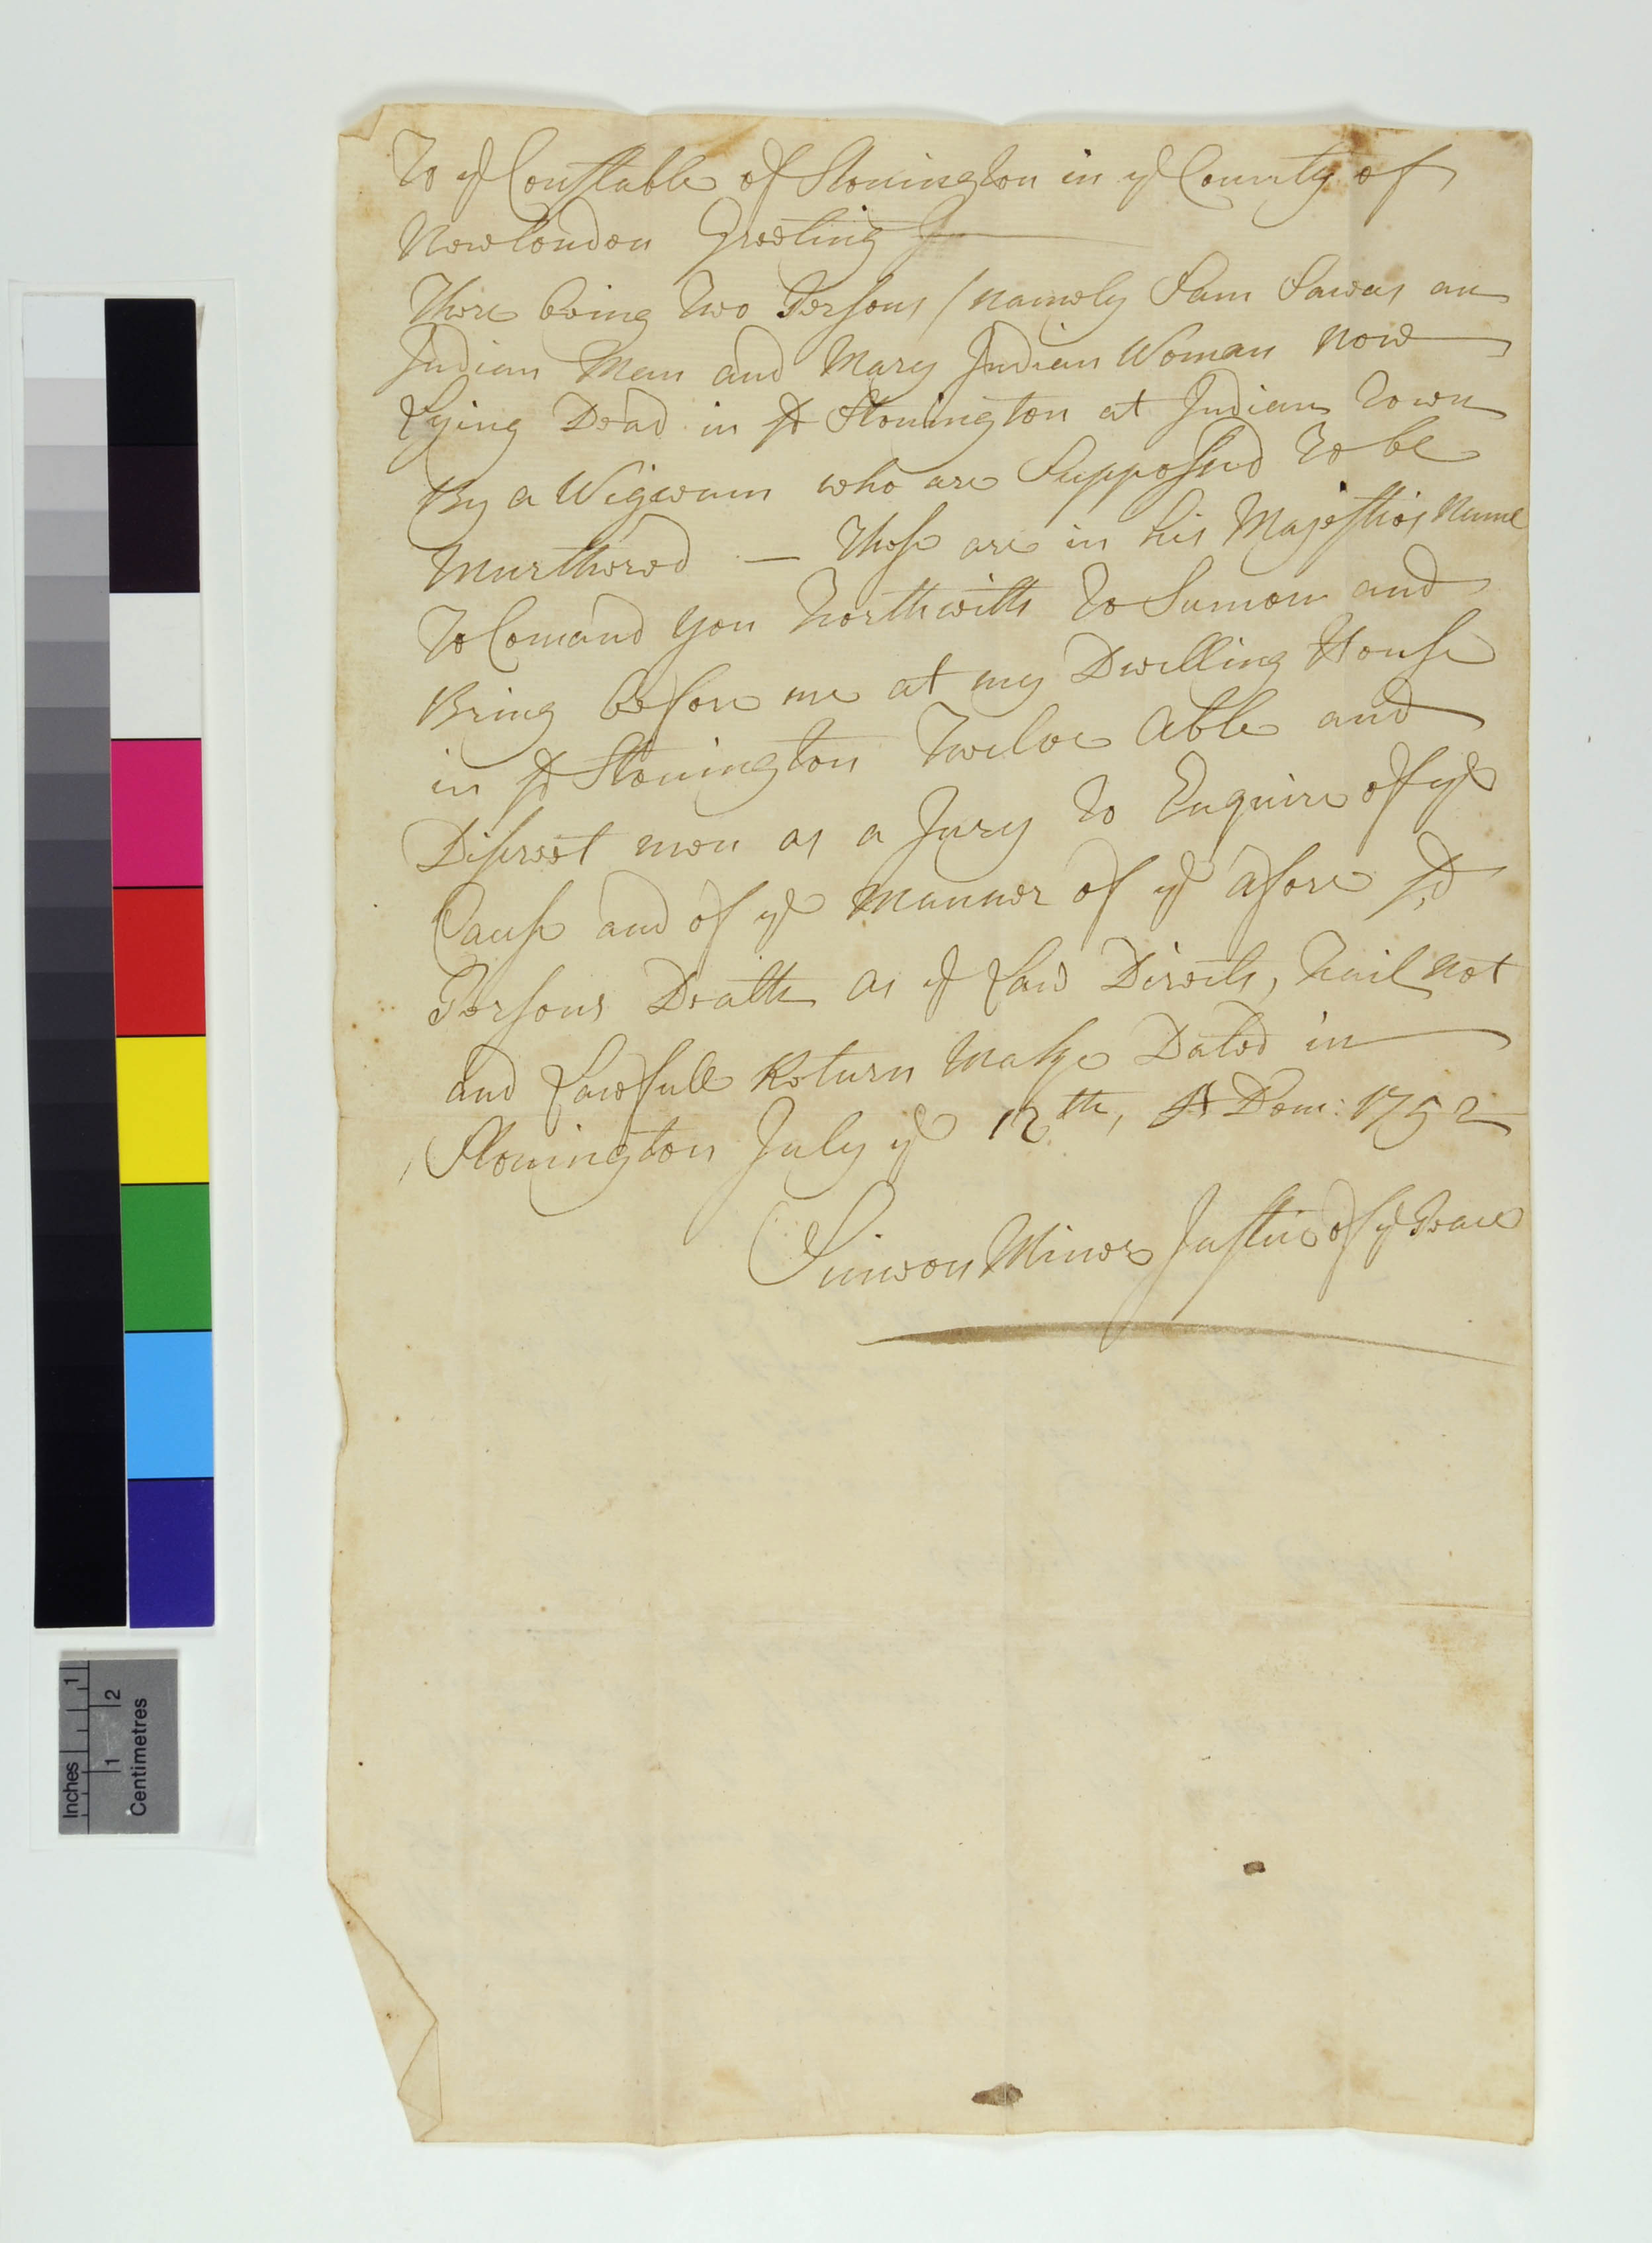 To yᵉ Constable of Stonington in yᵉ County of
Newlondon Greeting
There being Two Persons / namely Sam Sawas an
Indian Man and Mary Indian Woman now
Lying Dead in sᵈ Stonington at Indian Town
By a Wigwam who are Supposed To be
Murthered — These are in his Majesties Name
To Comand you Forthwith To Sumon and
Bring before me at my Dwelling House
in sᵈ Stonington Twelve Able and
Discreet men as a Jury To Enquire of yᵉ
Cause and of yᵉ Manner of yᵉ afore sᵈ
Persons Death as yᵉ Law Directs, Fail not
and Lawfull Return Make Dated in
Stonington July yᵉ 12th, A Dom: 1752
Simeon Miner Justice of yᵉ Peace
Inches 1
1 2
Centimetres